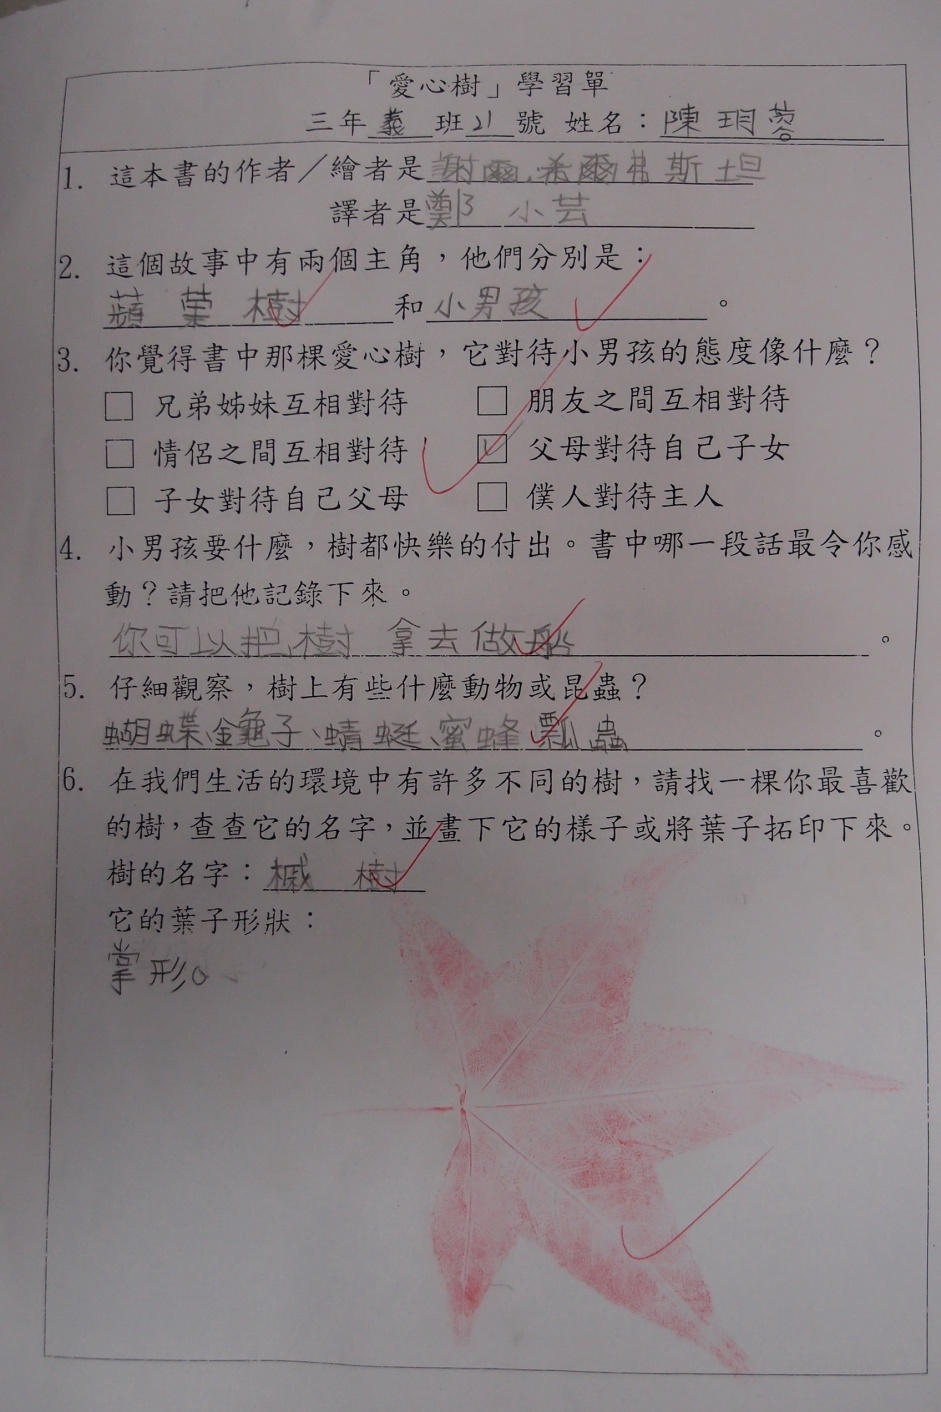 「愛心樹」學習單
三年義班21號 姓名：陳玥蓉
1. 這本書的作者／繪者是謝爾．希爾弗斯坦
譯者是鄭小芸
2. 這個故事中有兩個主角，他們分別是：
蘋菓樹和小男孩。
3. 你覺得書中那棵愛心樹，它對待小男孩的態度像什麼？
□ 兄弟姊妹互相對待 □ 朋友之間互相對待
□ 情侶之間互相對待 ☑ 父母對待自己子女
□ 子女對待自己父母 □ 僕人對待主人
4. 小男孩要什麼，樹都快樂的付出。書中哪一段話最令你感
動？請把他記錄下來。
你可以把樹拿去做船。
5. 仔細觀察，樹上有些什麼動物或昆蟲？
蝴蝶、金龜子、蜻蜓、蜜蜂、瓢蟲。
6. 在我們生活的環境中有許多不同的樹，請找一棵你最喜歡
的樹，查查它的名字，並畫下它的樣子或將葉子拓印下來。
樹的名字：槭樹
它的葉子形狀：
掌形。